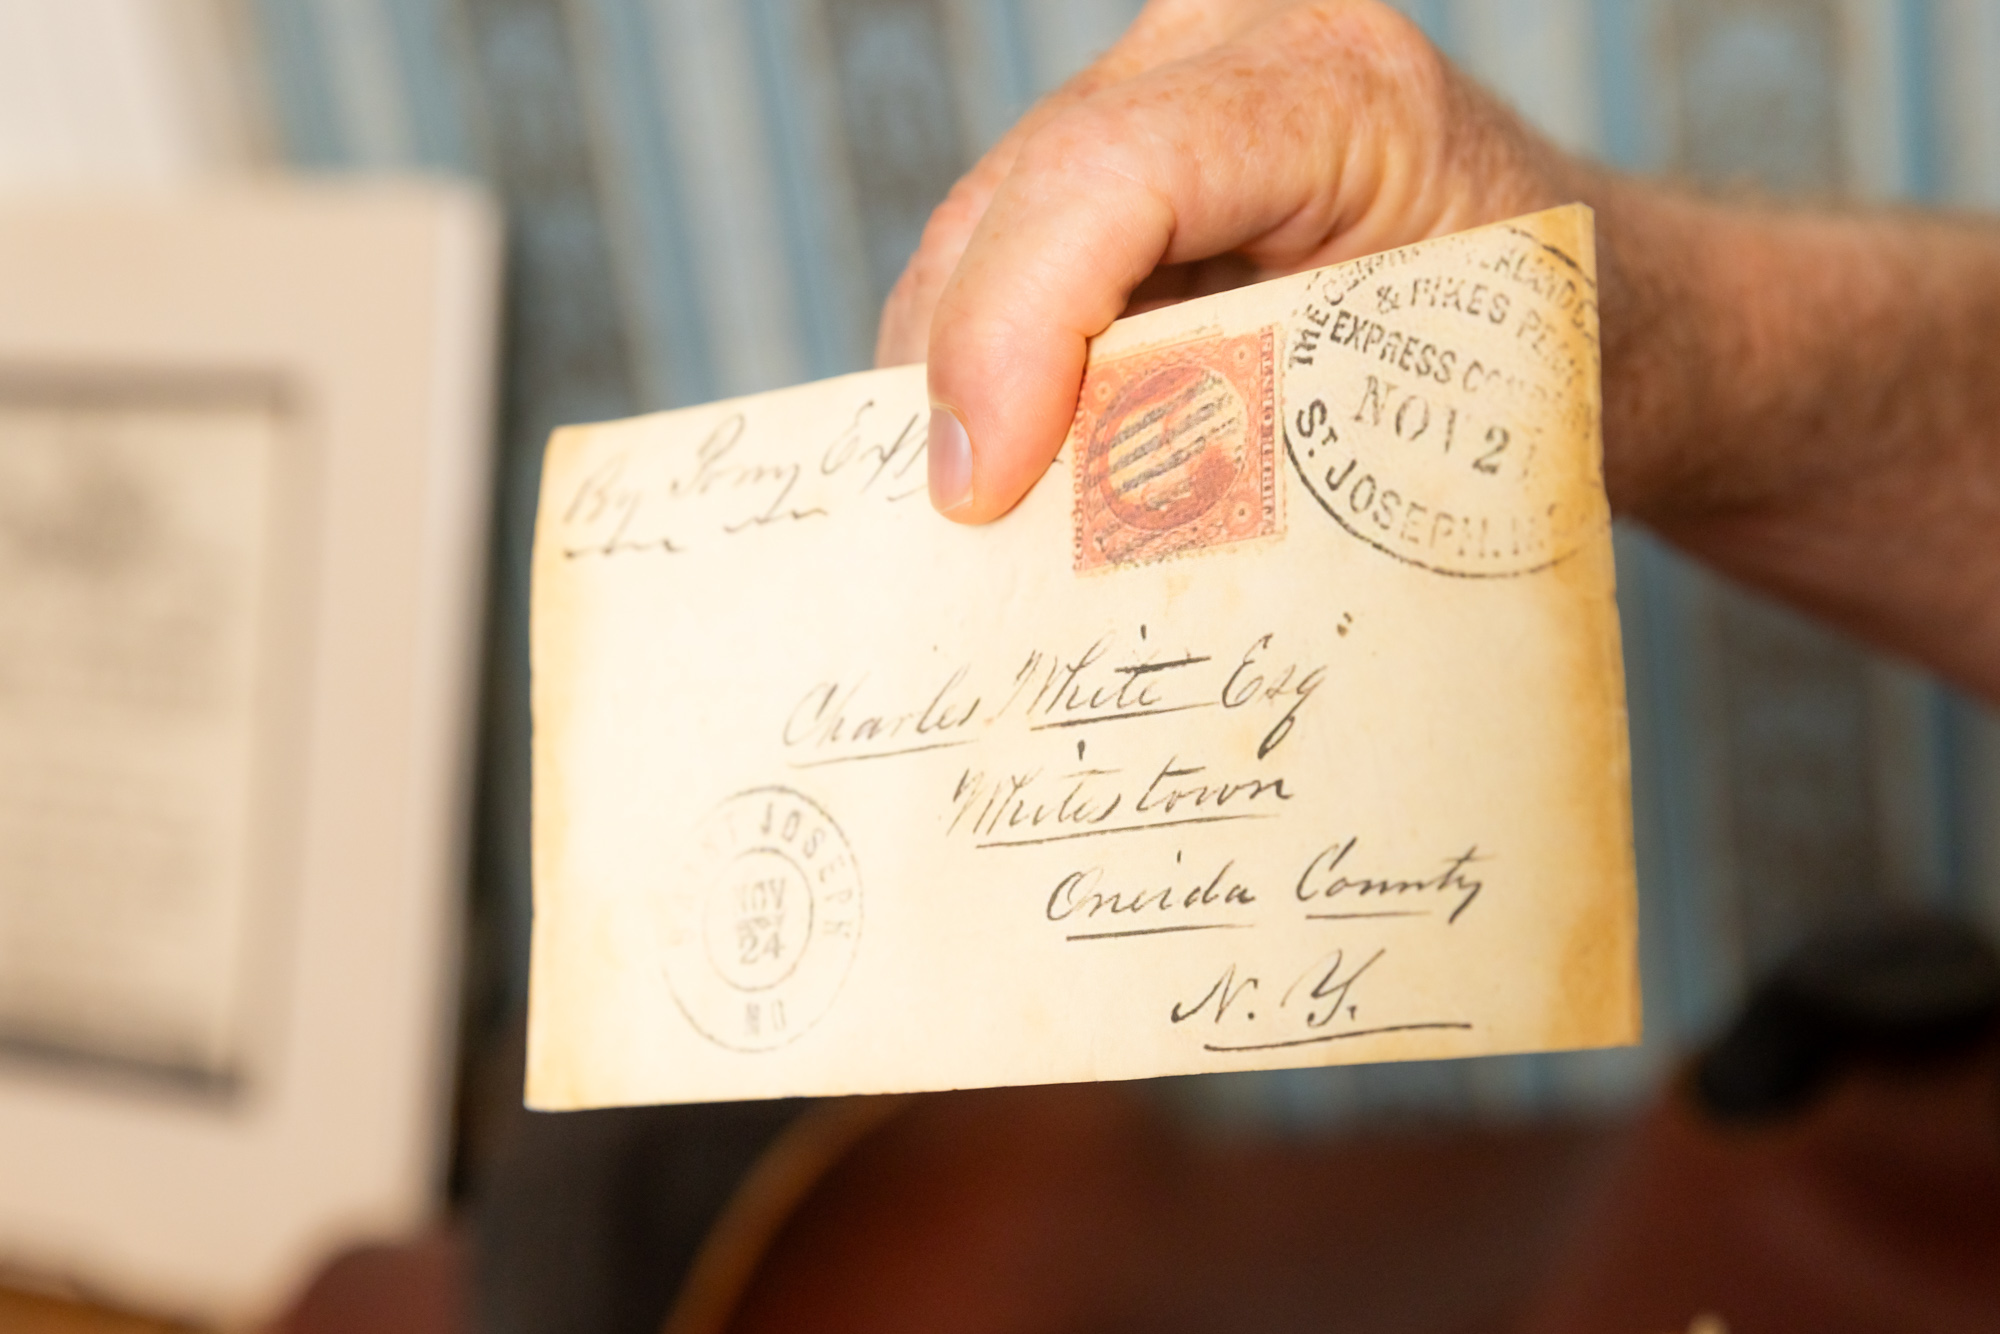 By Pony Exp
THE CENTRAL OVERLAND C
& PIKES PEAK
EXPRESS CO
NOV 2
ST. JOSEPH. M
Charles White Esq"
Whitestown
Oneida County
N. Y.
JOSEPH
NOV
24
MO